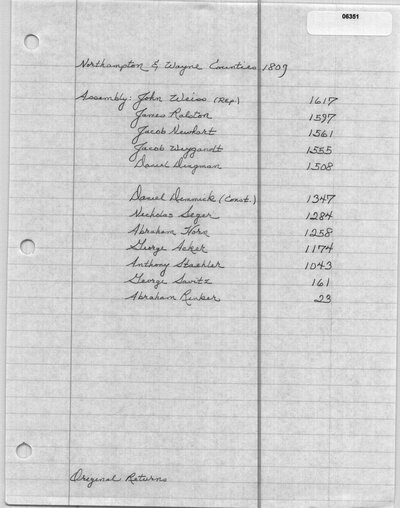 06351
Northampton & Wayne Counties 1809
Assembly: John Weiss (Rep.) 1617
James Ralston 1597
Jacob Newhart 1561
Jacob Weygandt 1555
Daniel Dingman 1508
Daniel Dimmick (Const.) 1347
Nicholas Seger 1284
Abraham Horn 1258
George Acker 1174
Anthony Staehler 1043
George Savitz 161
Abraham Rinker 23
Original Returns